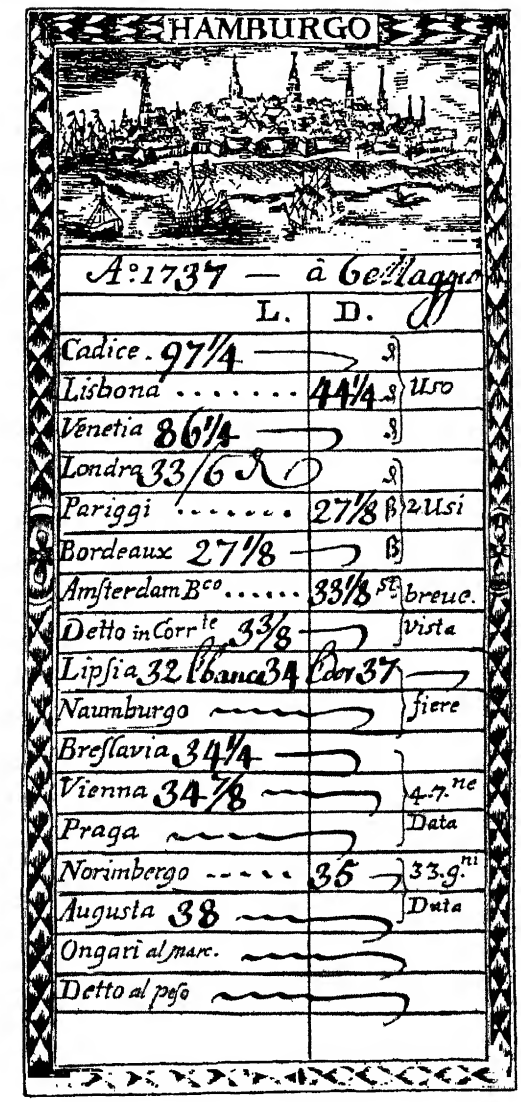 HAMBURGO
Aº. 1737 — â 6 Maggio
L. D.
Cadice. 97¼
Lisbona ....... 44¼ Uso
Venetia 86¼
Londra 33/6
Pariggi ...... 27⅛ ß 2 Usi
Bordeaux 27⅛ ß
Amsterdam Bco ...... 33⅛ st. breue.
Detto in Corrte 33/8 vista
Lipsia 32 banca 34 37
Naumburgo fiere
Breslavia 34¼
Vienna 34⅞ 4.7.ne
Praga Data
Norimbergo ----- 35 33.g.ni
Augusta 38 Data
Ongari al marc.
Detto al peso